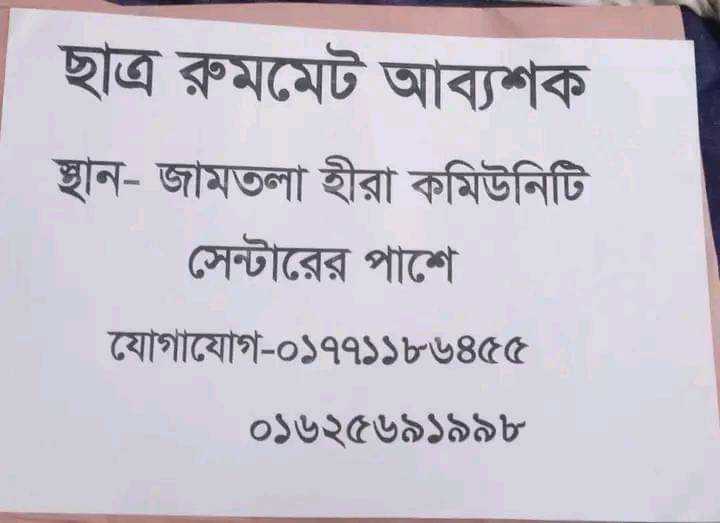 ছাত্র রুমমেট আব্যশক
স্থান- জামতলা হীরা কমিউনিটি
সেন্টারের পাশে
যোগাযোগ-০১৭৭১১৮৬৪৫৫
০১৬২৫৬৯১৯৯৮